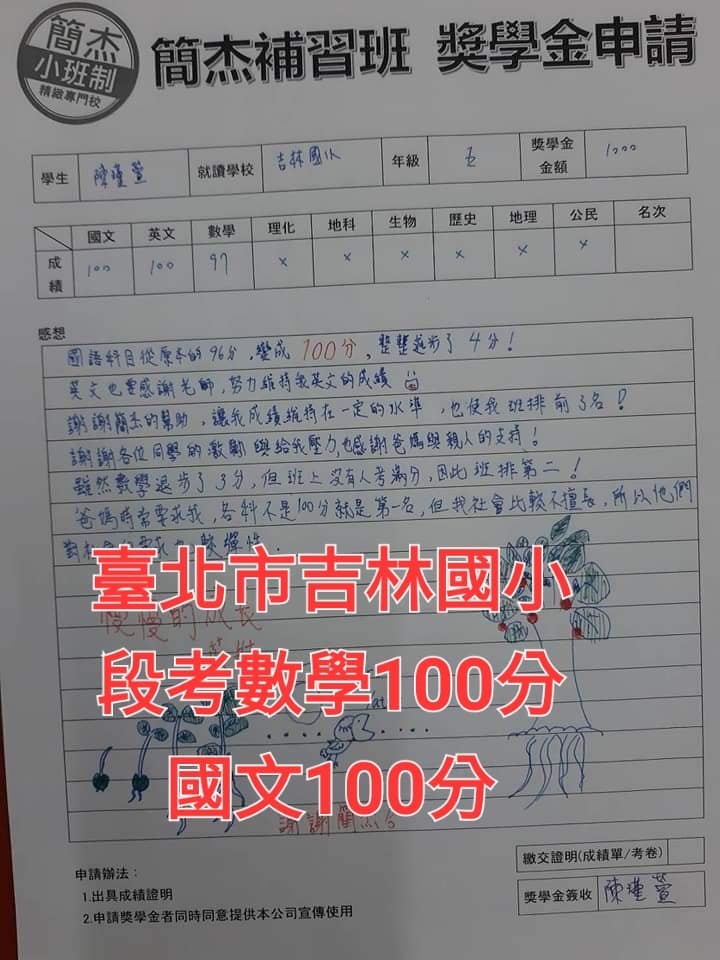 簡杰
小班制
精緻專門校
簡杰補習班 獎學金申請
學生 陳瑾萱 就讀學校 吉林國小 年級 五 獎學金金額 1000
國文 英文 數學 理化 地科 生物 歷史 地理 公民 名次
成績 100 100 97 × × × × × ×
感想
國語科目從原本的96分,變成100分,整整進步了4分!
英文也要感謝老師,努力維持我英文的成績
謝謝簡杰的幫助,讓我成績維持在一定的水準,也使我班排前3名!
謝謝各位同學的激勵與給我壓力,也感謝爸媽與親人的支持!
雖然數學退步了3分,但班上沒有人考滿分,因此班排第二!
爸媽時常要求我,各科不是100分就是第一名,但我社會比較不擅長,所以他們
臺北市吉林國小
慢慢的成長
段考數學100分
國文100分
謝謝簡杰
繳交證明(成績單/考卷)
申請辦法:
1.出具成績證明
2.申請獎學金者同時同意提供本公司宣傳使用
獎學金簽收 陳瑾萱